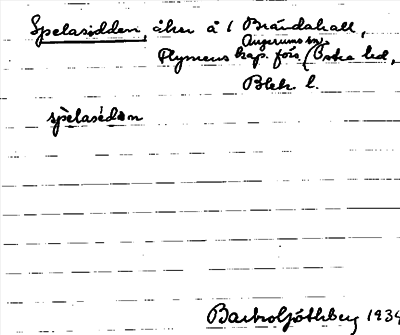 Spelasidden, åker å 1 Brändahall,
Augerums sn.
Flymens kap. förs. (Östra hd,
Blek. l.
spelasédən
Göthberg 1934